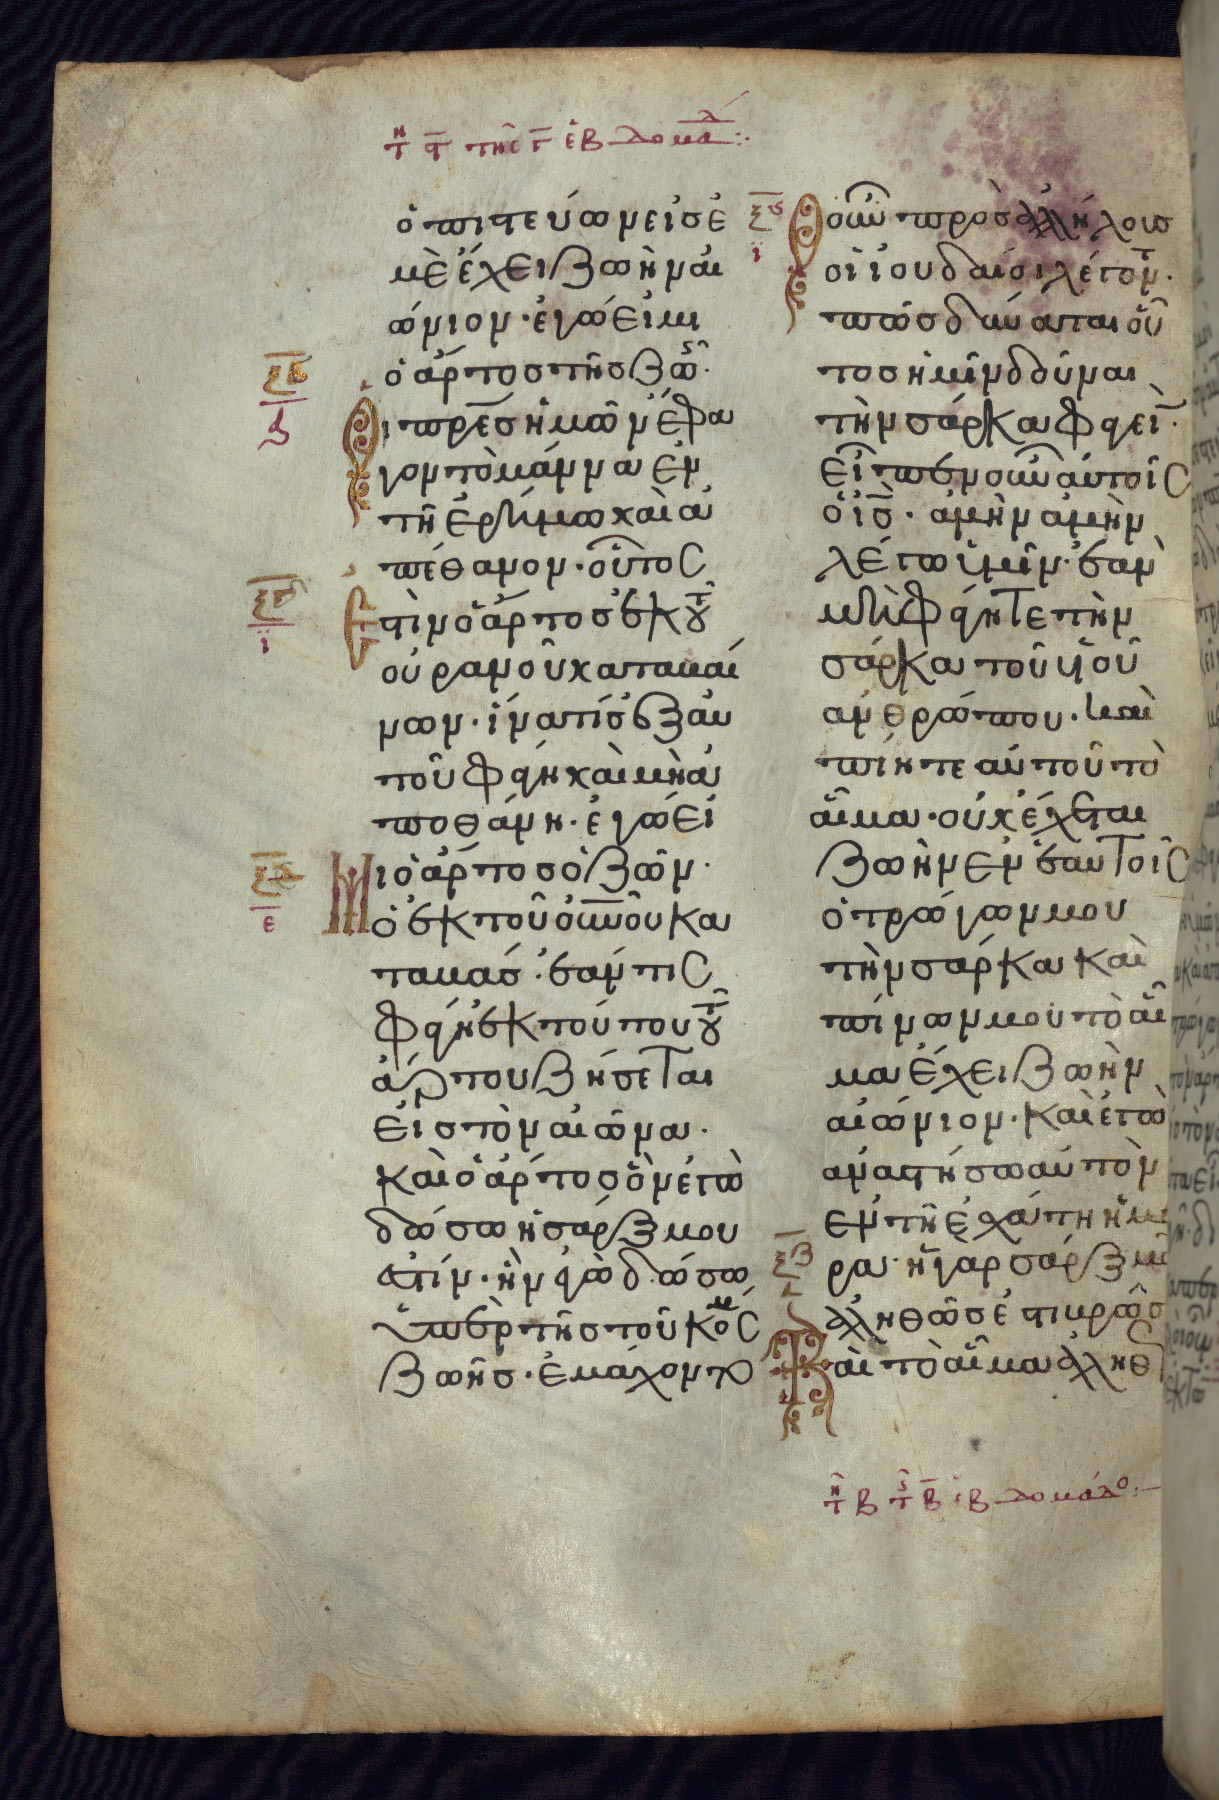 τη ϛ τῆς γ ἑβδομάδ :·
ὁ πιστεύων εἰς ἐ
μὲ ἔχει ζωὴν αἰ
ώνιον· ἐγώ εἰμι
ὁ ἄρτος τῆς ζωῆς·
οἱ πρες ἡμῶν ἔφα
γον τὸ μάννα ἐν
τῆ ἐρήμω καὶ ἀ
πέθανον· οὗτος
ἐστὶν ὁ ἄρτος ὁ ἐκ τοῦ
οὐρανοῦ καταβαί
νων· ἵνα τίς ἐξ αυ
τοῦ φάγη καὶ μὴ ἀ
ποθάνη· ἐγώ εἰ
μι ὁ ἄρτος ὁ ζῶν·
ὁ ἐκ τοῦ οὐνοῦ κα
ταβάς· ἐάν τις
φάγη ἐκ τούτου τοῦ
ἄρτου ζήσεται
εἰς τὸν αἰῶνα·
καὶ ὁ ἄρτος ὃν ἐγὼ
δώσω ἡ σάρξ μου
ἐστίν· ἣν ἐγὼ δώσω
ὑπὲρ τῆς τοῦ κόσμ
ζωῆς· ἐμάχοντο
ξϛ
ι
οὖν πρὸς ἀλλήλους
οἱ ἰουδαίοι λέγοντ·
πῶς δύναται οὗ
τος ἡμῖν δοῦναι
τὴν σάρκα φαγεῖν·
εἶπεν οὖν αὐτοῖς
ὁ ις· ἀμὴν ἀμὴν
λέγω ὑμῖν· ἐὰν
μὴ φάγητε τὴν
σάρκα τοῦ υἱοῦ
ἀνθρώπου· καὶ
πίητε αὐτοῦ τὸ
αἷμα· οὐκ ἔχεται
ζωὴν ἐν ἑαυτοῖς
ὁ τρώγων μου
τὴν σάρκα καὶ
πίνων μου τὸ αἷ
μα ἔχει ζωὴν
αἰώνιον· καὶ ἐγὼ
ἀναστήσω αὐτὸν
ἐν τῆ ἐσχάτη ἡμέ
ρα· ἡ γὰρ σάρξ μου
ἀληθῶς ἐστι βρῶσ
καὶ τὸ αἷμα ἀληθ